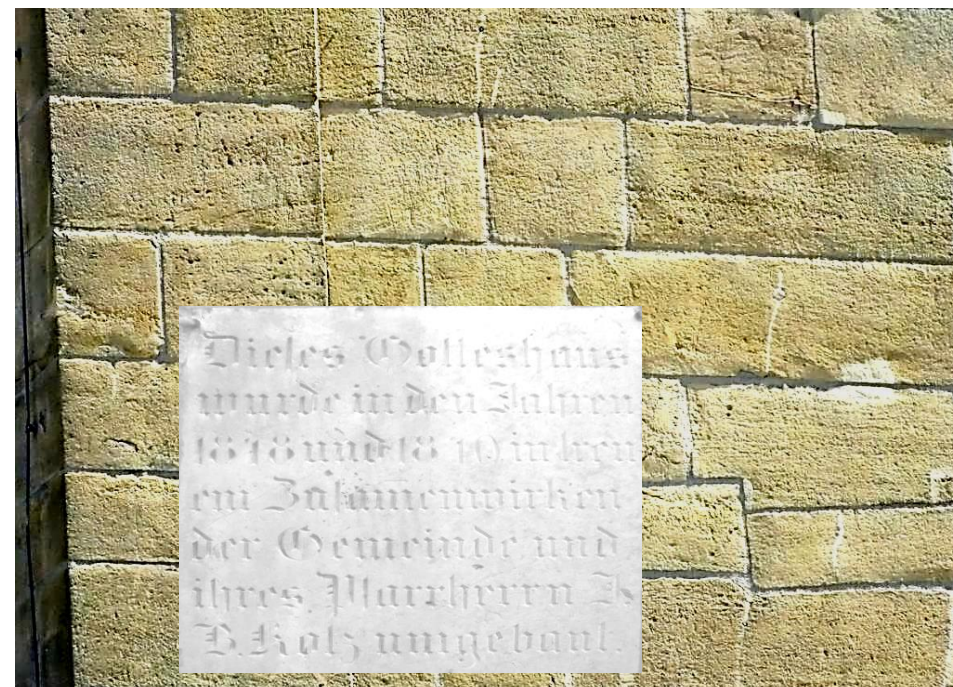 Dieses Gotteshaus
wurde in den Jahren
1848 und 1849 in treu
em Zusam̅enwirken
der Gemeinde und
ihres Pfarrherrn K
B. Kolz umgebaut.